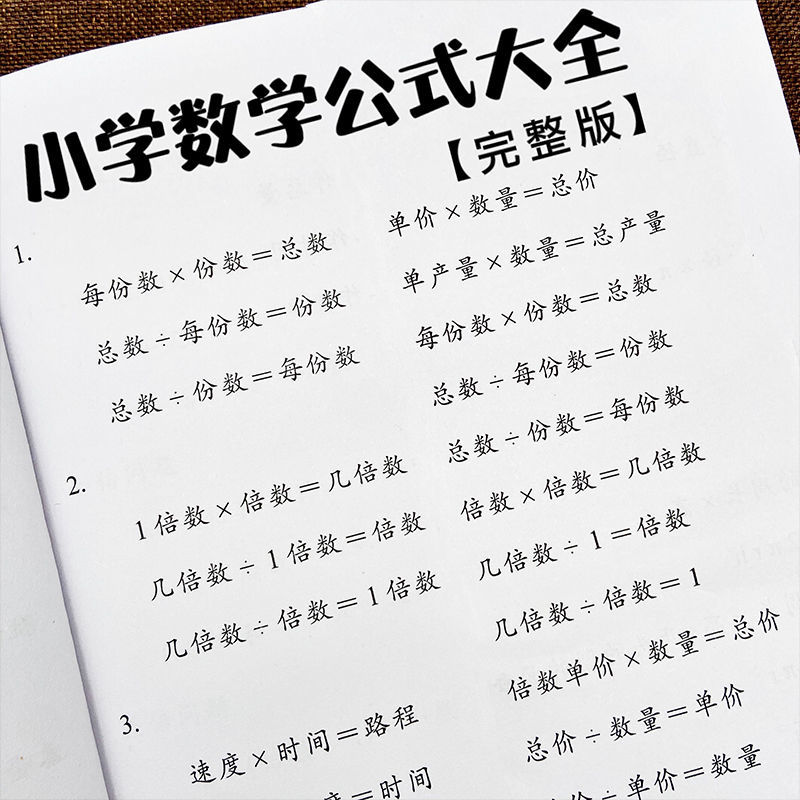 小学数学公式大全
【完整版】
1.
每份数×份数=总数
总数÷每份数=份数
总数÷份数=每份数
2.
1倍数×倍数=几倍数
几倍数÷1倍数=倍数
几倍数÷倍数=1倍数
3.
速度×时间=路程
度=时间
单价×数量=总价
单产量×数量=总产量
每份数×份数=总数
总数÷每份数=份数
总数÷份数=每份数
倍数×倍数=几倍数
几倍数÷1=倍数
几倍数÷倍数=1
倍数单价×数量=总价
总价÷数量=单价
÷单价=数量